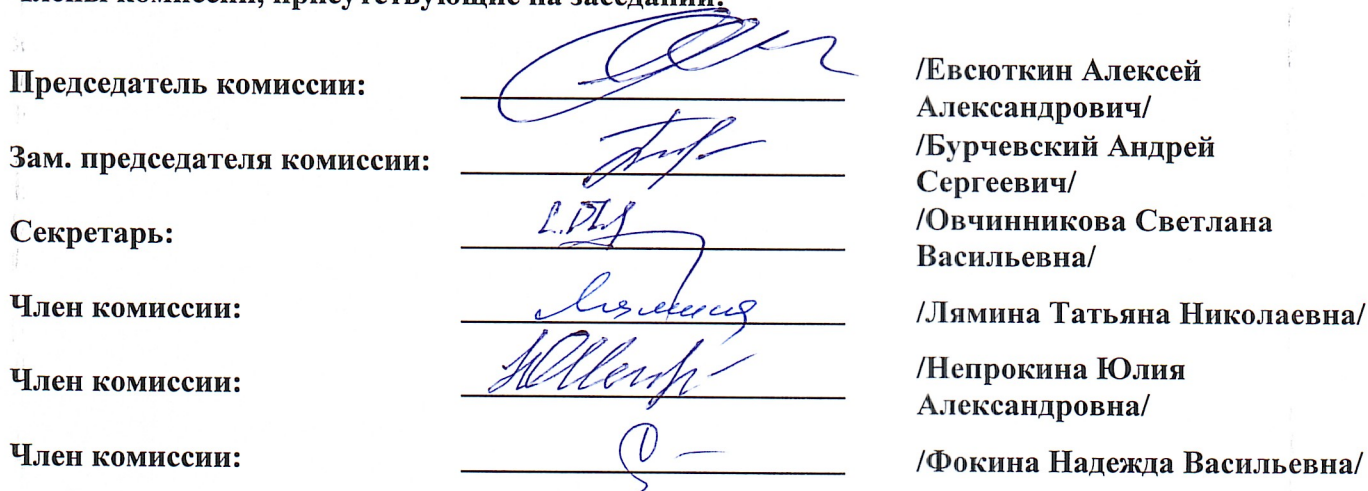 Члены комиссии, присутствующие на заседании:
Председатель комиссии: /Евсюткин Алексей
Александрович/
Зам. председателя комиссии: /Бурчевский Андрей
Сергеевич/
Секретарь: /Овчинникова Светлана
Васильевна/
Член комиссии: Лямина /Лямина Татьяна Николаевна/
Член комиссии: /Непрокина Юлия
Александровна/
Член комиссии: /Фокина Надежда Васильевна/